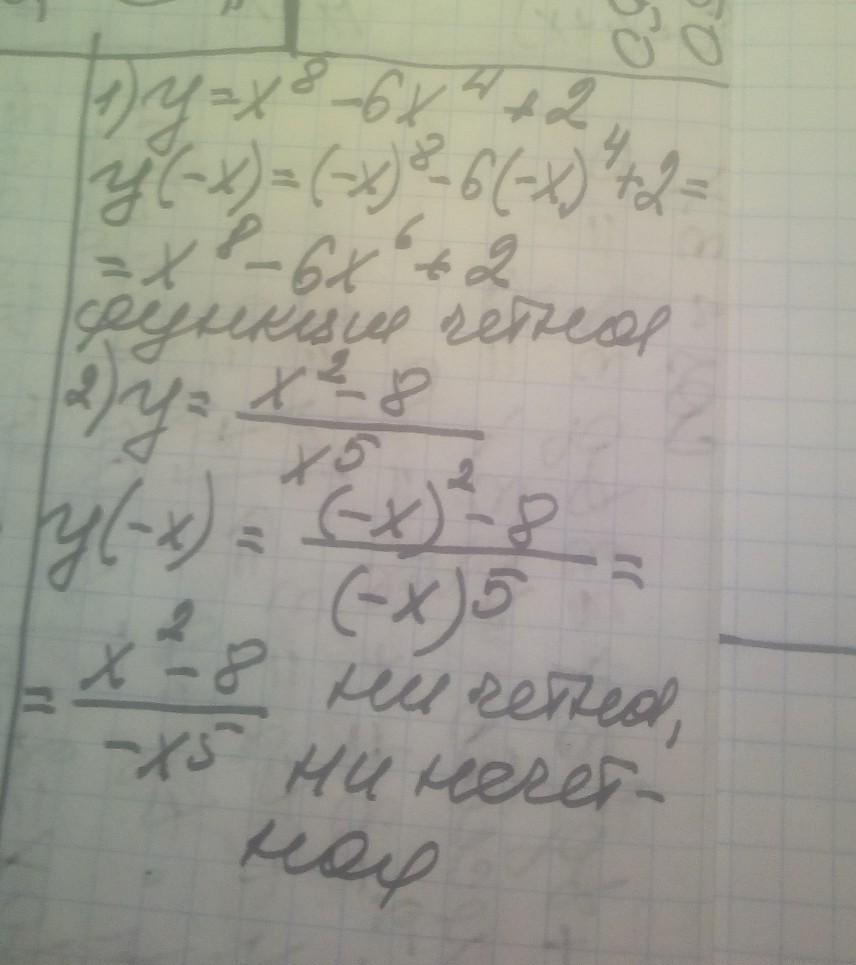 1) y=x⁸-6x⁴+2
y(-x)=(-x)⁸-6(-x)⁴+2=
=x⁸-6x⁶+2
функция четная
2) y= x²-8
x⁵
y(-x) = (-x)²-8 =
(-x)5
= x²-8 ни четная,
-x5 ни нечет-
ная